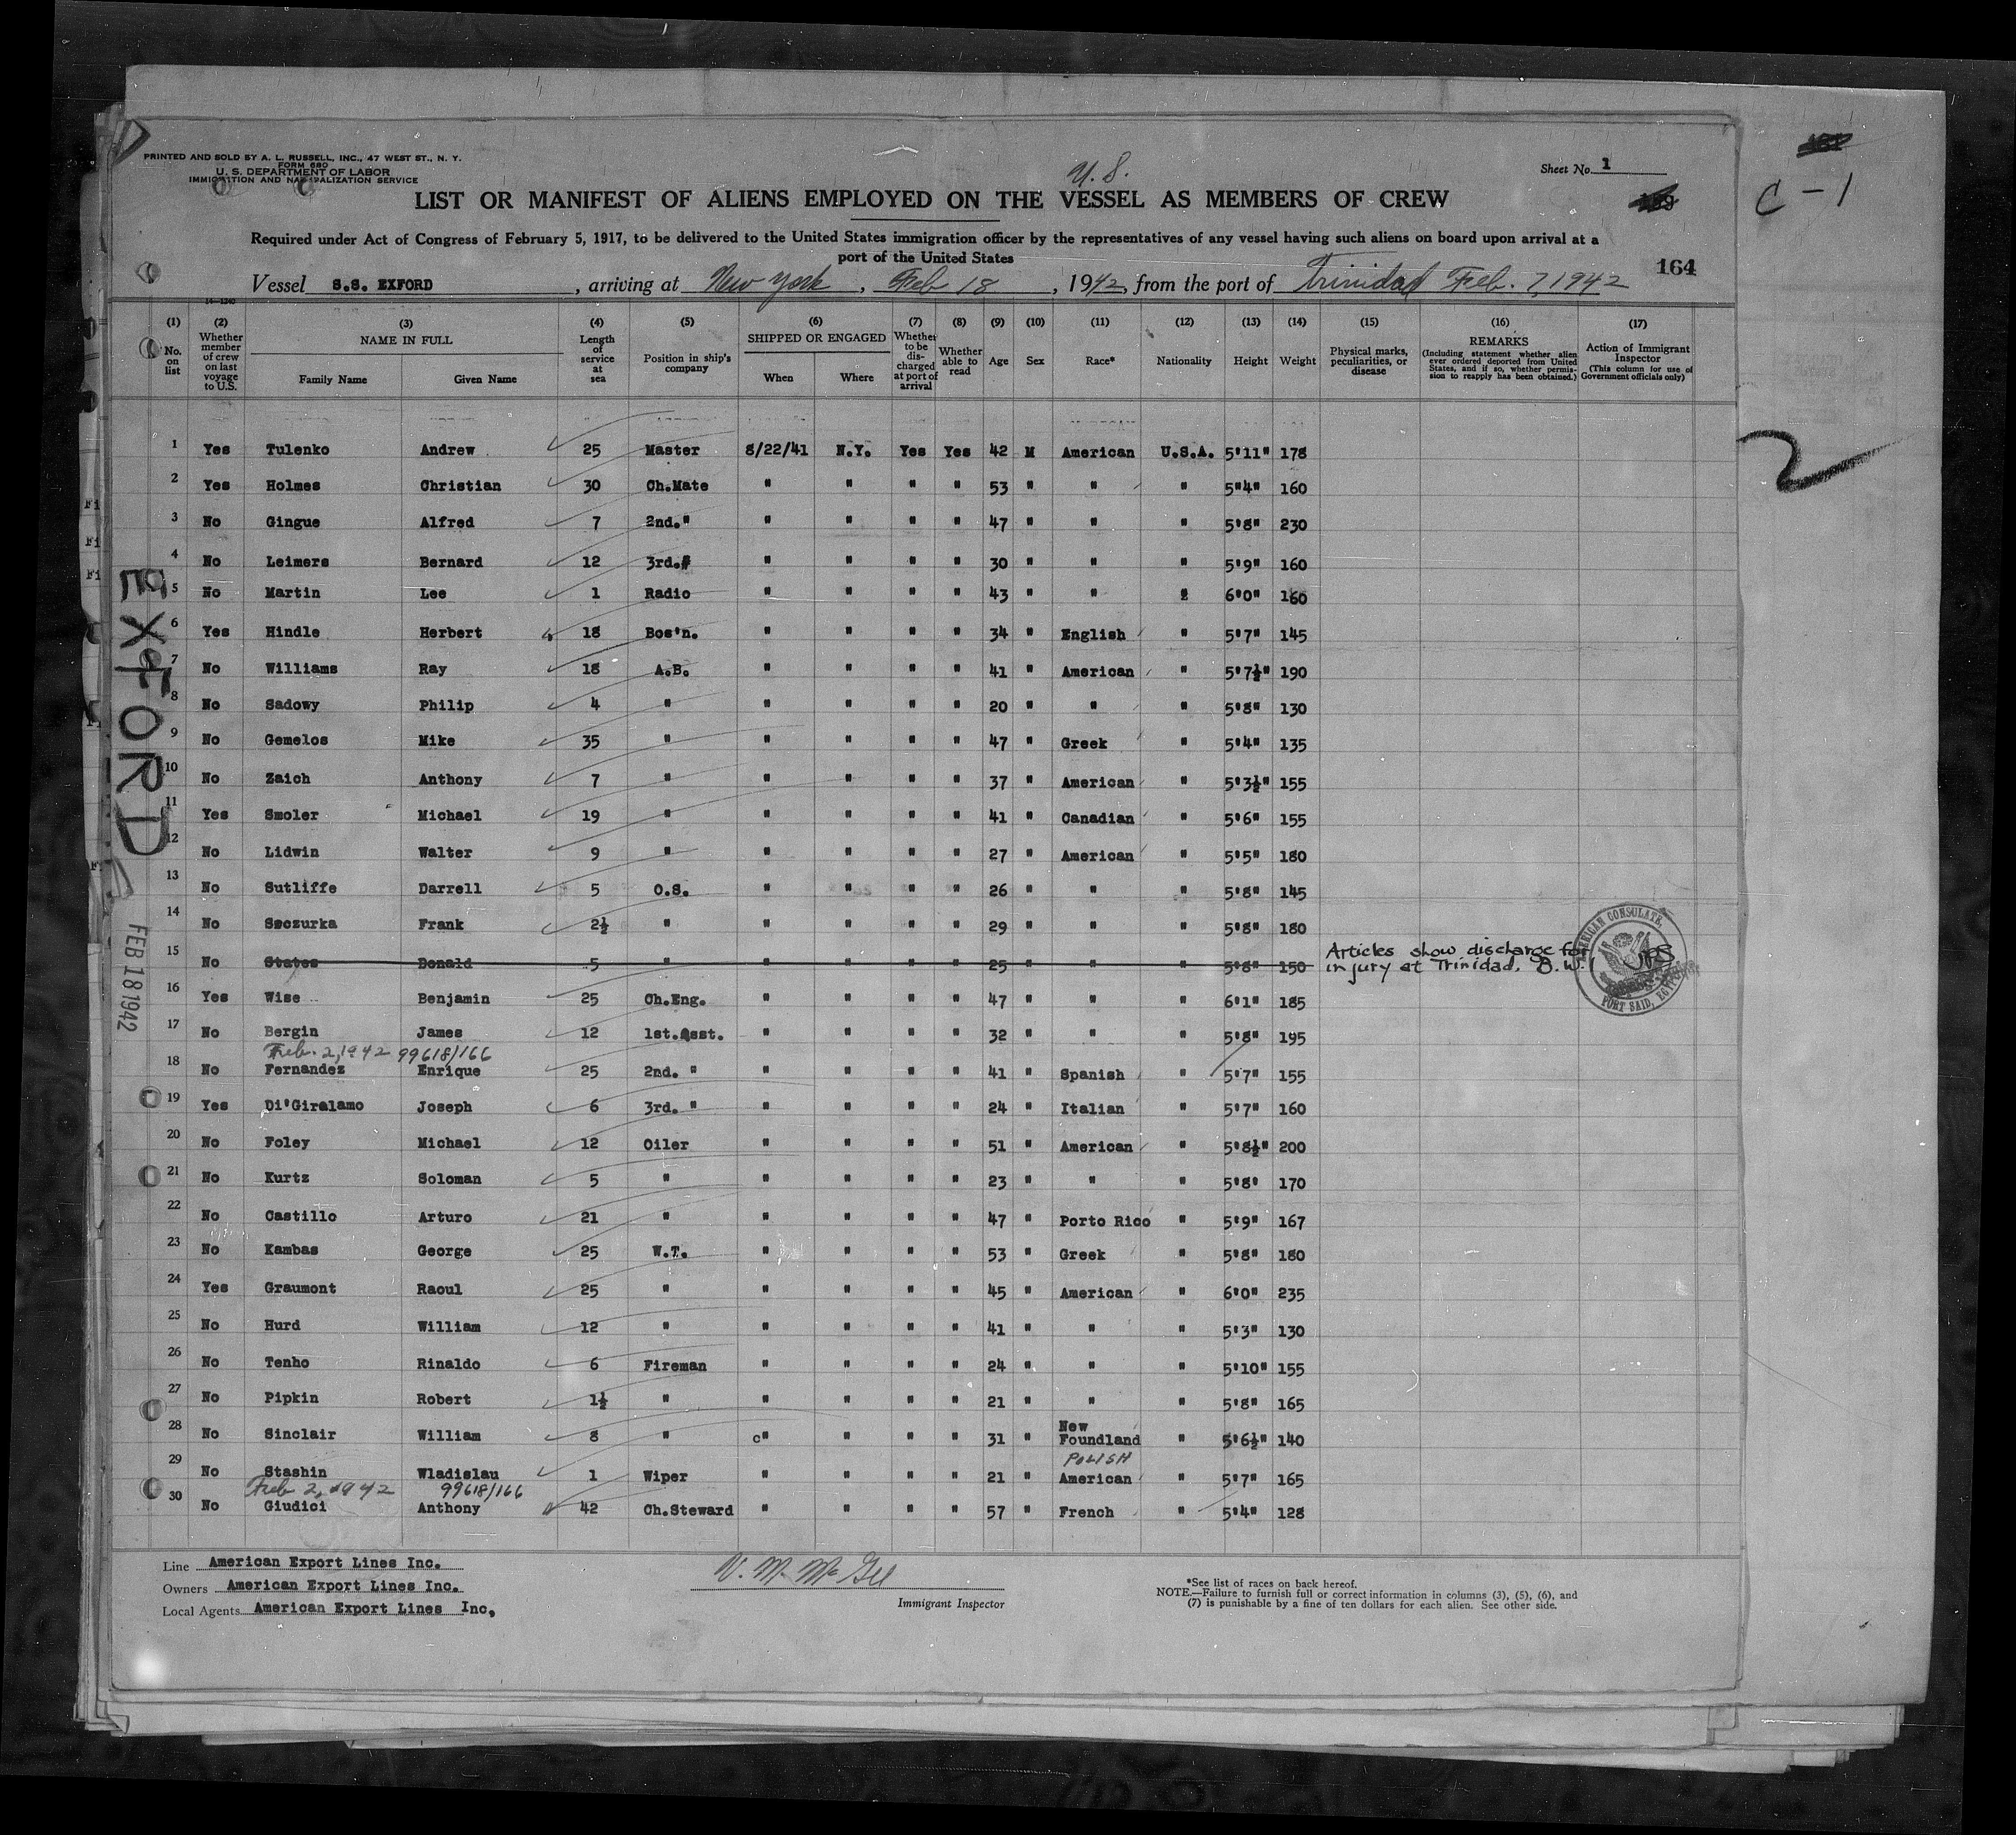 PRINTED AND SOLD BY A. L. RUSSELL, INC., 47 WEST ST., N. Y.
FORM 680
U. S. DEPARTMENT OF LABOR
IMMIGRATION AND NATURALIZATION SERVICE
U. S.
Sheet No. 1
C-1
LIST OR MANIFEST OF ALIENS EMPLOYED ON THE VESSEL AS MEMBERS OF CREW
Required under Act of Congress of February 5, 1917, to be delivered to the United States immigration officer by the representatives of any vessel having such aliens on board upon arrival at a
port of the United States
164
Vessel S.S. EXFORD, arriving at New York, Feb 18, 1942, from the port of Trinidad Feb. 7, 1942
14-1240
(1) No. on list
(2) Whether member of crew on last voyage to U.S.
(3) NAME IN FULL Family Name Given Name
(4) Length of service at sea
(5) Position in ship's company
(6) SHIPPED OR ENGAGED When Where
(7) Whether to be discharged at port of arrival
(8) Whether able to read
(9) Age
(10) Sex
(11) Race*
(12) Nationality
(13) Height
(14) Weight
(15) Physical marks, peculiarities, or disease
(16) REMARKS (Including statement whether alien ever ordered deported from United States, and if so, whether permission to reapply has been obtained.)
(17) Action of Immigrant Inspector (This column for use of Government officials only)
1 Yes Tulenko Andrew 25 Master 8/22/41 N.Y. Yes Yes 42 M American U.S.A. 5'11" 178
2 Yes Holmes Christian 30 Ch.Mate " " " " 53 " " " 5"4" 160
3 No Gingue Alfred 7 2nd." " " " " 47 " " " 5'8" 230
4 No Leimers Bernard 12 3rd." " " " " 30 " " " 5'9" 160
5 No Martin Lee 1 Radio " " " " 43 " " " 6'0" 160
6 Yes Hindle Herbert 18 Bos'n. " " " " 34 " English " 5'7" 145
7 No Williams Ray 18 A.B. " " " " 41 " American " 5'7½" 190
8 No Sadowy Philip 4 " " " " " 20 " " " 5'8" 130
9 No Gemelos Mike 35 " " " " " 47 " Greek " 5'4" 135
10 No Zaich Anthony 7 " " " " " 37 " American " 5'3½" 155
11 Yes Smoler Michael 19 " " " " " 41 " Canadian " 5'6" 155
12 No Lidwin Walter 9 " " " " " 27 " American " 5'5" 180
13 No Sutliffe Darrell 5 O.S. " " " " 26 " " " 5'8" 145
14 No Szczurka Frank 2½ " " " " " 29 " " " 5'8" 180
15 No States Donald 5 " " " " " 25 " " " 5'8" 150 Articles show discharge for
injury at Trinidad. B.W.I.
AMERICAN CONSULATE, PORT SAID, EGYPT
16 Yes Wise Benjamin 25 Ch.Eng. " " " " 47 " " " 6'1" 185
17 No Bergin James 12 1st.Asst. " " " " 32 " " " 5'8" 195
Feb. 2, 1942 99618/166
18 No Fernandez Enrique 25 2nd. " " " " " 41 " Spanish " 5'7" 155
19 Yes Di'Giralamo Joseph 6 3rd. " " " " " 24 " Italian " 5'7" 160
20 No Foley Michael 12 Oiler " " " " 51 " American " 5'8½" 200
21 No Kurtz Soloman 5 " " " " " 23 " " " 5'8' 170
22 No Castillo Arturo 21 " " " " " 47 " Porto Rico " 5'9" 167
23 No Kambas George 25 W.T. " " " " 53 " Greek " 5'8" 180
24 Yes Graumont Raoul 25 " " " " " 45 " American " 6'0" 235
25 No Hurd William 12 " " " " " 41 " " " 5'3" 130
26 No Tenho Rinaldo 6 Fireman " " " " 24 " " " 5'10" 155
27 No Pipkin Robert 1½ " " " " " 21 " " " 5'8" 165
28 No Sinclair William 8 " c" " " " 31 " New Foundland " 5'6½" 140
POLISH
29 No Stashin Wladislau 1 Wiper " " " " 21 " American " 5'7" 165
Feb 2, 1942 99618/166
30 No Giudici Anthony 42 Ch.Steward " " " " 57 " French " 5'4" 128
EXFORD
FEB 18 1942
2
Line American Export Lines Inc.
Owners American Export Lines Inc.
Local Agents American Export Lines Inc,
V. M. McGee
Immigrant Inspector
*See list of races on back hereof.
NOTE.—Failure to furnish full or correct information in columns (3), (5), (6), and
(7) is punishable by a fine of ten dollars for each alien. See other side.